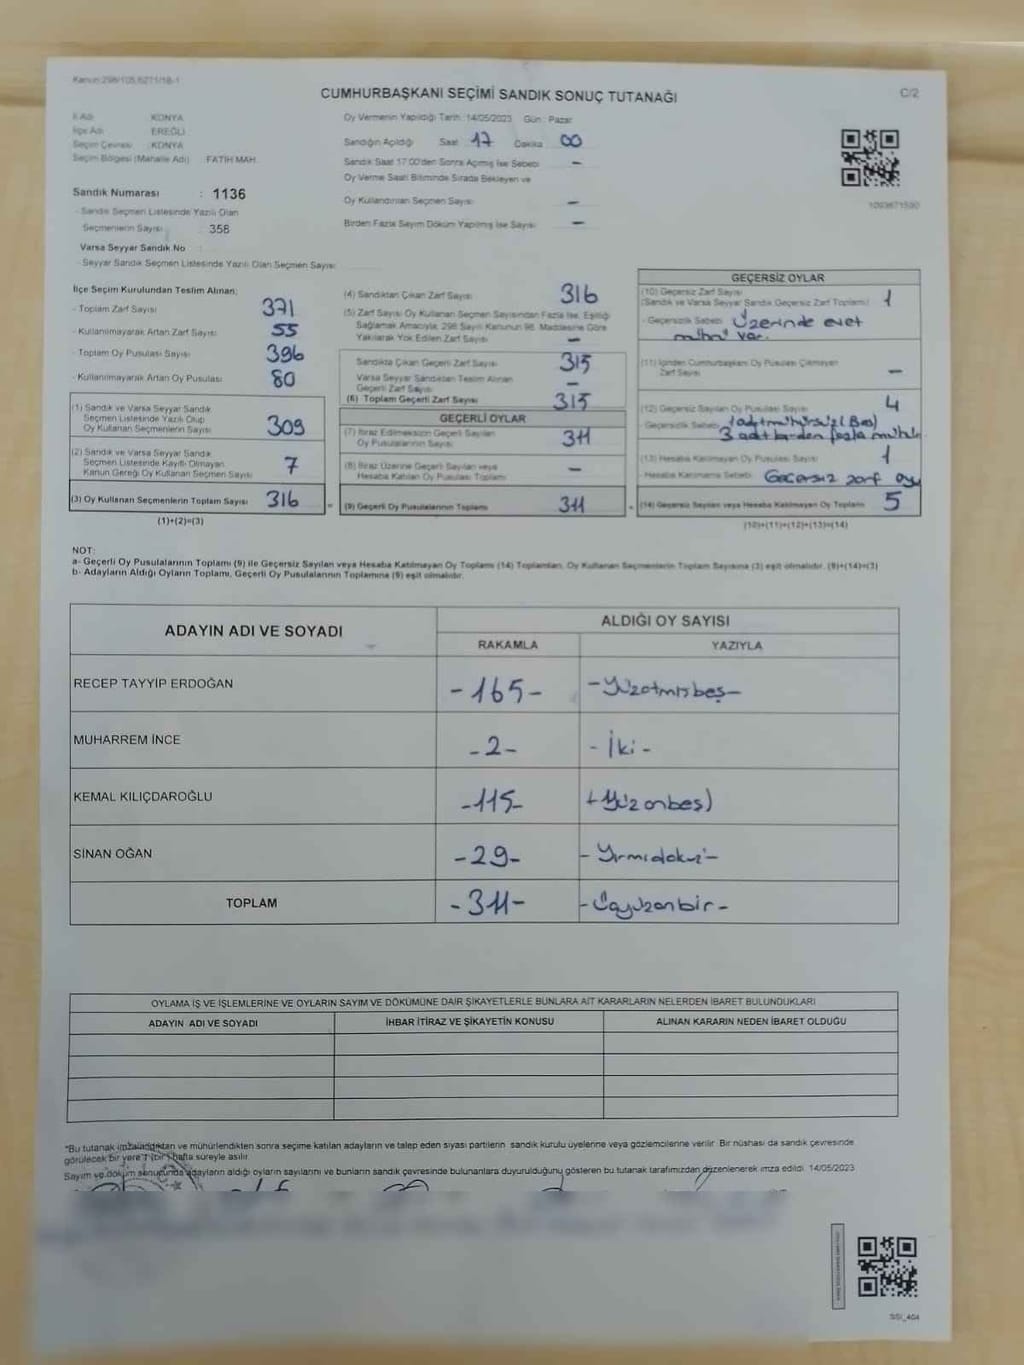 Kanun:298/105,6271/18-1
CUMHURBAŞKANI SEÇİMİ SANDIK SONUÇ TUTANAĞI
C/2
İl Adı KONYA
İlçe Adı EREĞLİ
Seçim Çevresi KONYA
Seçim Bölgesi (Mahalle Adı) FATİH MAH.
Sandık Numarası : 1136
- Sandık Seçmen Listesinde Yazılı Olan
Seçmenlerin Sayısı 358
Varsa Seyyar Sandık No
- Seyyar Sandık Seçmen Listesinde Yazılı Olan Seçmen Sayısı
Oy Vermenin Yapıldığı Tarih :14/05/2023 Gün : Pazar
Sandığın Açıldığı Saat 17 Dakika 00
Sandık Saat 17:00'den Sonra Açılmış İse Sebebi -
Oy Verme Saati Bitiminde Sırada Bekleyen ve
Oy Kullandırılan Seçmen Sayısı -
Birden Fazla Sayım Döküm Yapılmış İse Sayısı -
1093671590
İlçe Seçim Kurulundan Teslim Alınan:
- Toplam Zarf Sayısı 371
- Kullanılmayarak Artan Zarf Sayısı 55
- Toplam Oy Pusulası Sayısı 396
- Kullanılmayarak Artan Oy Pusulası 80
(1) Sandık ve Varsa Seyyar Sandık
Seçmen Listesinde Yazılı Olup
Oy Kullanan Seçmenlerin Sayısı 309
(2) Sandık ve Varsa Seyyar Sandık
Seçmen Listesinde Kayıtlı Olmayan
Kanun Gereği Oy Kullanan Seçmen Sayısı 7
(3) Oy Kullanan Seçmenlerin Toplam Sayısı 316
(1)+(2)=(3)
(4) Sandıktan Çıkan Zarf Sayısı 316
(5) Zarf Sayısı Oy Kullanan Seçmen Sayısından Fazla İse, Eşitliği
Sağlamak Amacıyla, 298 Sayılı Kanunun 98. Maddesine Göre
Yakılarak Yok Edilen Zarf Sayısı -
Sandıkta Çıkan Geçerli Zarf Sayısı 315
Varsa Seyyar Sandıktan Teslim Alınan
Geçerli Zarf Sayısı -
(6) Toplam Geçerli Zarf Sayısı 315
GEÇERLİ OYLAR
(7) İtiraz Edilmeksizin Geçerli Sayılan
Oy Pusulalarının Sayısı 311
(8) İtiraz Üzerine Geçerli Sayılan veya
Hesaba Katılan Oy Pusulası Toplamı -
(9) Geçerli Oy Pusulalarının Toplamı 311
GEÇERSİZ OYLAR
(10) Geçersiz Zarf Sayısı
(Sandık ve Varsa Seyyar Sandık Geçersiz Zarf Toplamı) 1
- Geçersizlik Sebebi Üzerinde evet
mührü var.
(11) İçinden Cumhurbaşkanı Oy Pusulası Çıkmayan
Zarf Sayısı -
(12) Geçersiz Sayılan Oy Pusulası Sayısı 4
Geçersizlik Sebebi 1 adet mühürsüz (Boş)
3 adet birden fazla mühür
(13) Hesaba Katılmayan Oy Pusulası Sayısı 1
- Hesaba Katılmama Sebebi Geçersiz zarf oyu
(14) Geçersiz Sayılan veya Hesaba Katılmayan Oy Toplamı 5
(10)+(11)+(12)+(13)=(14)
NOT:
a- Geçerli Oy Pusulalarının Toplamı (9) ile Geçersiz Sayılan veya Hesaba Katılmayan Oy Toplamı (14) Toplamları, Oy Kullanan Seçmenlerin Toplam Sayısına (3) eşit olmalıdır. (9)+(14)=(3)
b- Adayların Aldığı Oyların Toplamı, Geçerli Oy Pusulalarının Toplamına (9) eşit olmalıdır.
ADAYIN ADI VE SOYADI
ALDIĞI OY SAYISI
RAKAMLA YAZIYLA
RECEP TAYYİP ERDOĞAN -165- -Yüzatmışbeş-
MUHARREM İNCE -2- -İki-
KEMAL KILIÇDAROĞLU -115- (Yüzonbeş)
SİNAN OĞAN -29- -Yirmidokuz-
TOPLAM -311- -Üçyüzonbir-
OYLAMA İŞ VE İŞLEMLERİNE VE OYLARIN SAYIM VE DÖKÜMÜNE DAİR ŞİKAYETLERLE BUNLARA AİT KARARLARIN NELERDEN İBARET BULUNDUKLARI
ADAYIN ADI VE SOYADI İHBAR İTİRAZ VE ŞİKAYETİN KONUSU ALINAN KARARIN NEDEN İBARET OLDUĞU
*Bu tutanak imzalandıktan ve mühürlendikten sonra seçime katılan adayların ve talep eden siyasi partilerin sandık kurulu üyelerine veya gözlemcilerine verilir. Bir nüshası da sandık çevresinde
görülecek bir yere 1 (bir) hafta süreyle asılır.
Sayım ve döküm sonucunda adayların aldığı oyların sayılarını ve bunların sandık çevresinde bulunanlara duyurulduğunu gösteren bu tutanak tarafımızdan düzenlenerek imza edildi. 14/05/2023
SSİ_404